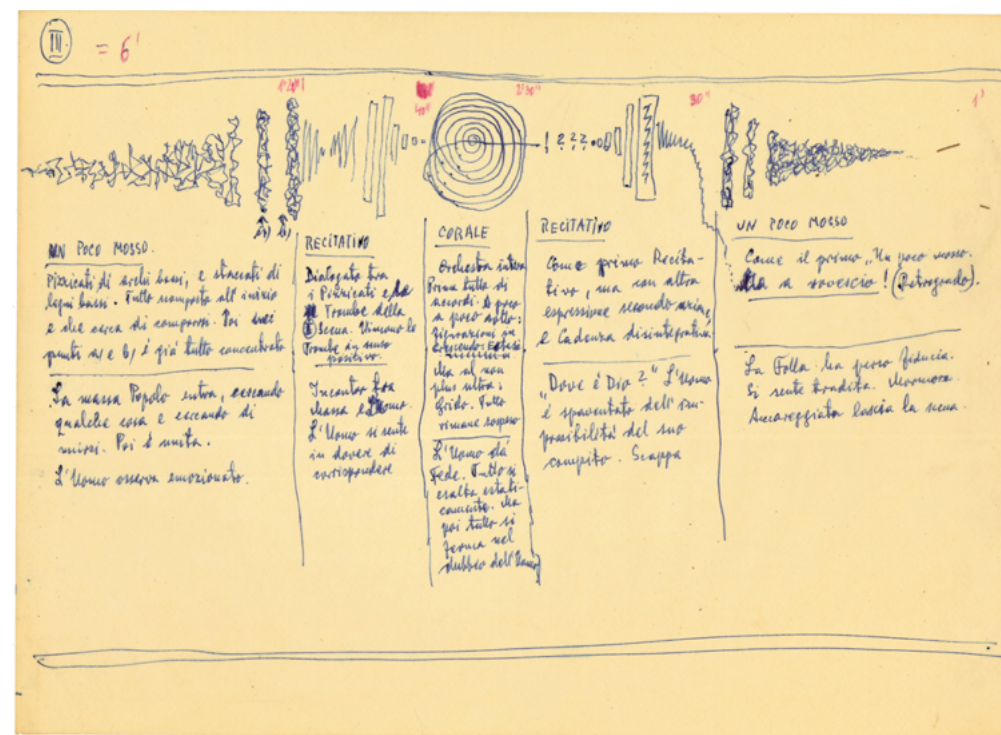 III = 6'
1'20"
40"
2'30"
30"
1'
! ? ? ?
a) b)
UN POCO MOSSO.
Pizzicati di archi bassi, e staccati di
legni bassi. Tutto scomposto all'inizio
e che cerca di comporsi. Poi nei
punti a) e b) è già tutto concentrato
La massa Popolo entra, cercando
qualche cosa e cercando di
unirsi. Poi è unita.
L'Uomo osserva emozionato.
RECITATIVO
Dialogato tra
i Pizzicati e le
Trombe della
Scena. Vincono le
Trombe in senso
positivo.
Incontro tra
Massa e Uomo.
L'Uomo si sente
in dovere di
corrispondere
CORALE
Orchestra intera
Prima tutto di
accordi. A poco
a poco sotto:
figurazioni in
crescendo:
Ma al non
plus ultra:
Grido. Tutto
rimane sospeso
L'Uomo dà
Fede. Tutto si
esalta estati-
camente. Ma
poi tutto si
ferma nel
dubbio dell'Uomo
RECITATIVO
Come primo Recita-
tivo, ma con altra
espressione secondo azione,
e Cadenza disintegrativa
"Dove è Dio?" L'Uomo
è spaventato dell'im-
possibilità del suo
compito. Scappa
UN POCO MOSSO
Come il primo "Un poco mosso"
Ma a rovescio! (Retrogrado).
La Folla ha perso fiducia.
Si sente tradita. Mormora.
Amareggiata lascia la scena.